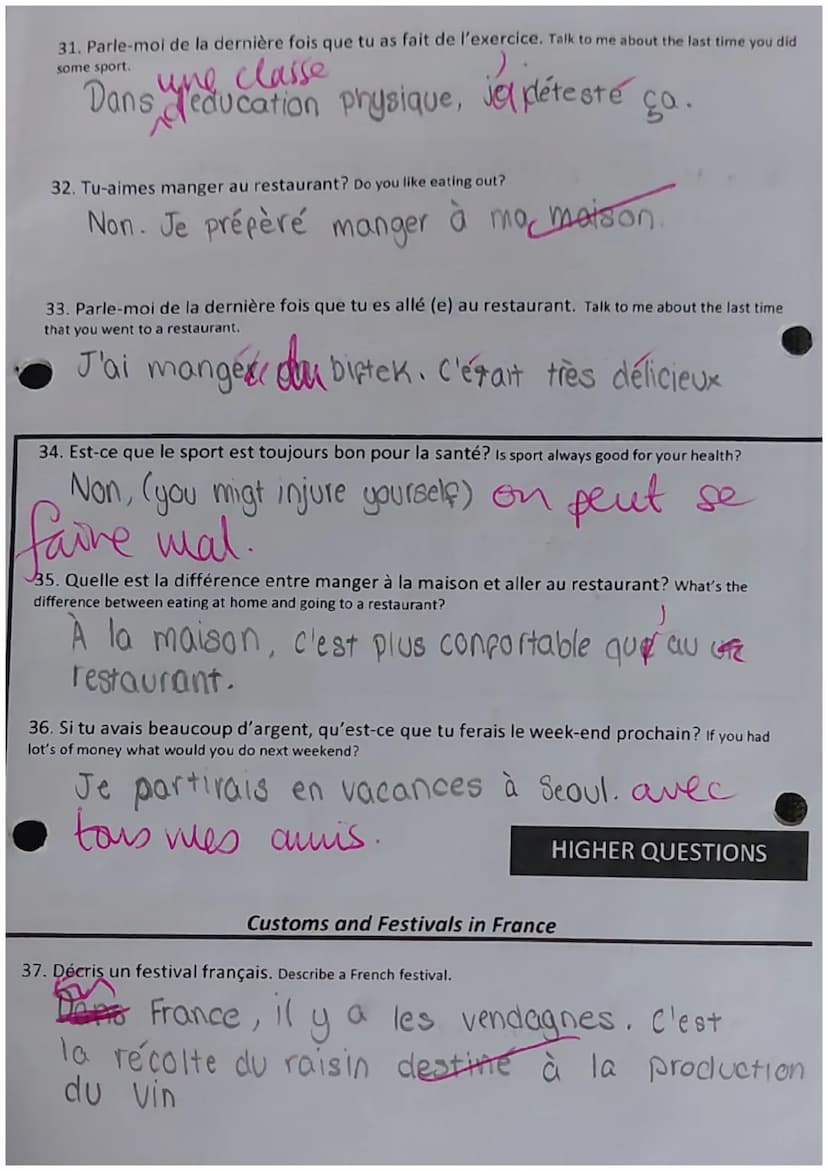 31. Parle-moi de la dernière fois que tu as fait de l'exercice. Talk to me about the last time you did
some sport.
une classe
Dans d'éducation physique, j'ai détesté ça.
32. Tu-aimes manger au restaurant? Do you like eating out?
Non. Je prépèré manger à ma maison.
33. Parle-moi de la dernière fois que tu es allé (e) au restaurant. Talk to me about the last time
that you went to a restaurant.
J'ai mangé du biftek. C'était très délicieux
34. Est-ce que le sport est toujours bon pour la santé? Is sport always good for your health?
Non, (you migt injure yourself) on peut se
faire mal.
35. Quelle est la différence entre manger à la maison et aller au restaurant? What's the
difference between eating at home and going to a restaurant?
À la maison, c'est plus confortable qu'au
restaurant.
36. Si tu avais beaucoup d'argent, qu'est-ce que tu ferais le week-end prochain? If you had
lot's of money what would you do next weekend?
Je partirais en vacances à Seoul. avec
tous mes amis.
HIGHER QUESTIONS
Customs and Festivals in France
37. Décris un festival français. Describe a French festival.
En
Dans France, il y a les vendagnes. C'est
la récolte du raisin destiné à la production
du vin